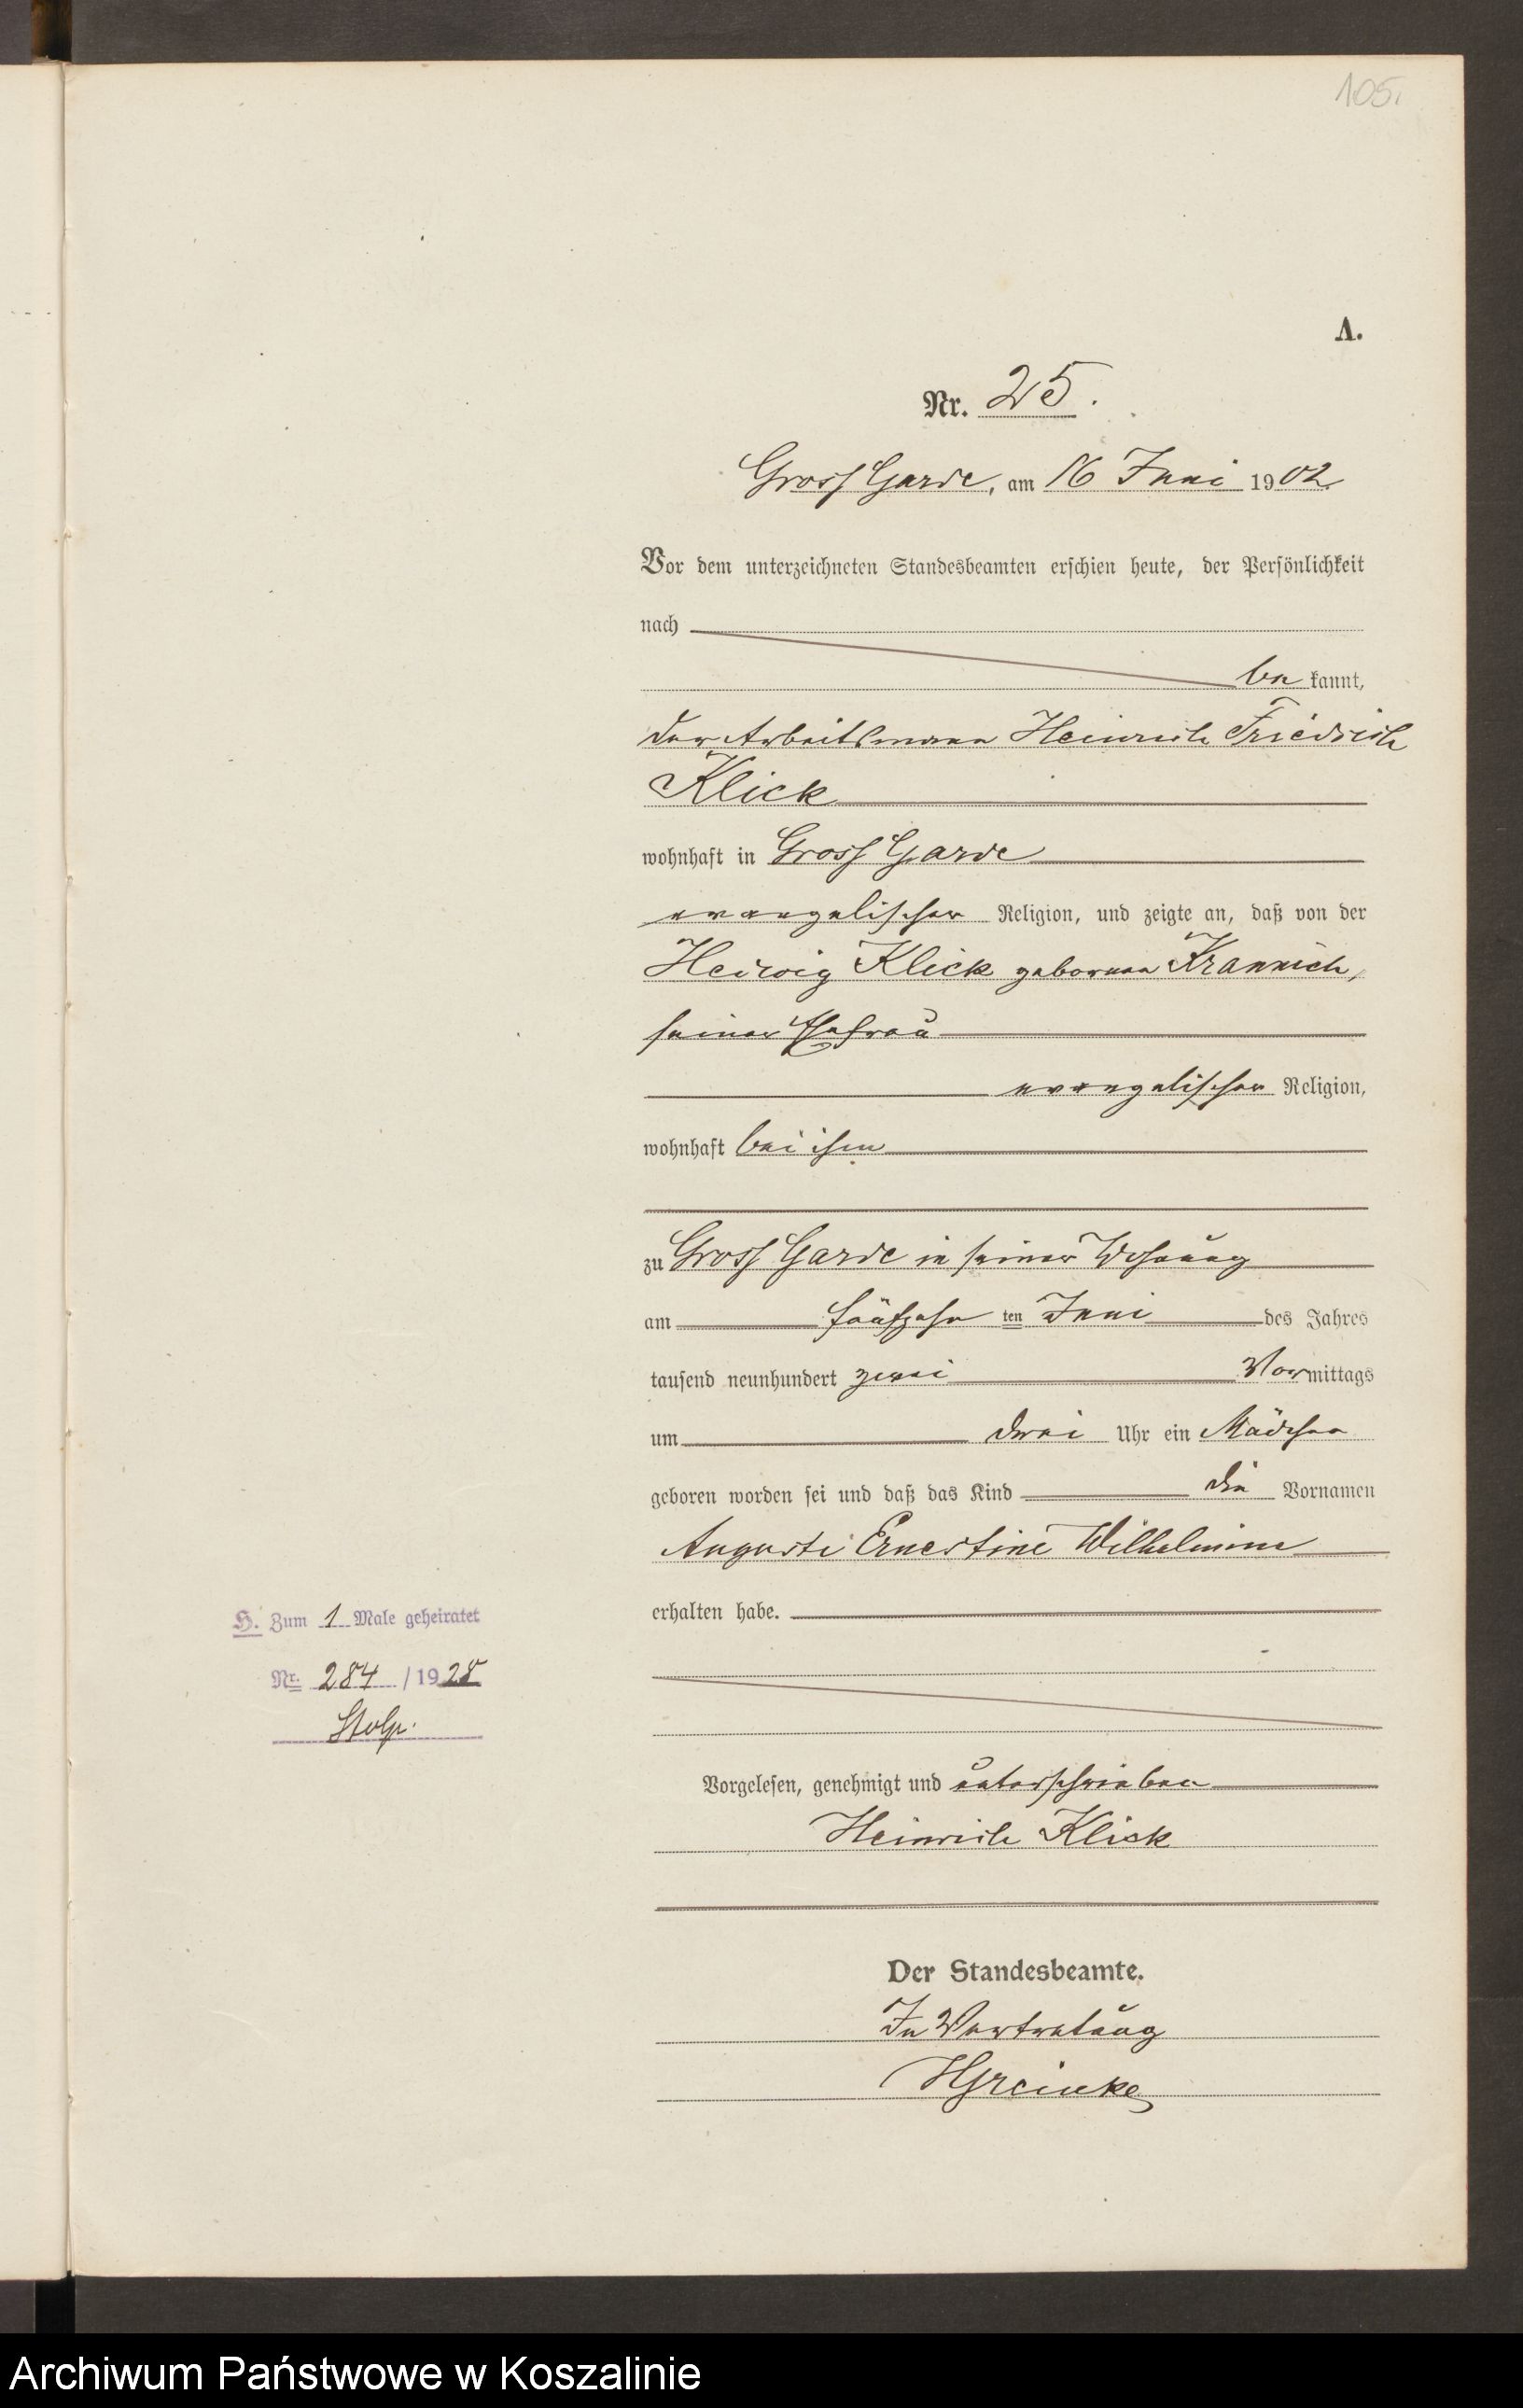 105.
A.
Nr. 25.
Gross Garde, am 16 Juni 1902
Vor dem unterzeichneten Standesbeamten erschien heute, der Persönlichkeit
nach
be kannt,
der Arbeitsmann Heinrich Friedrich
Klick
wohnhaft in Gross Garde
evangelischer Religion, und zeigte an, daß von der
Hedwig Klick geborenen Krannich,
seiner Ehefrau
evangelischer Religion,
wohnhaft bei ihm
zu Gross Garde in seiner Wohnung
am fünfzehn ten Juni des Jahres
tausend neunhundert zwei Vormittags
um drei Uhr ein Mädchen
geboren worden sei und daß das Kind die Vornamen
Auguste Ernestine Wilhelmine
erhalten habe.
H. Zum 1 Male geheiratet
Nr. 284 / 1928
Stolp.
Vorgelesen, genehmigt und unterschrieben
Heinrich Klick
Der Standesbeamte.
In Vertretung
HGreinke
Archiwum Państwowe w Koszalinie